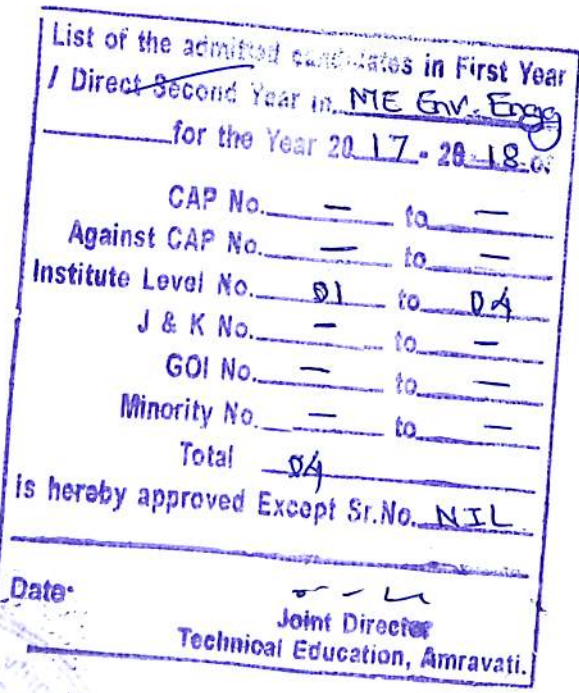 List of the admitted candidates in First Year
/ Direct Second Year in ME Env. Engg
for the Year 2017 - 2018 of
CAP No. — to —
Against CAP No. — to —
Institute Level No. 01 to 04
J & K No. — to —
GOI No. — to —
Minority No. — to —
Total 04
is hereby approved Except Sr.No. NIL
Date:
Joint Director
Technical Education, Amravati.